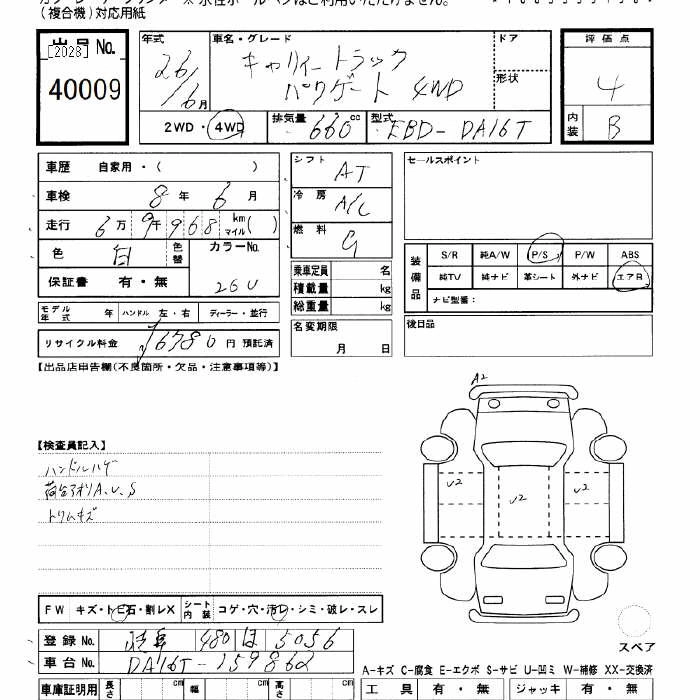 (複合機)対応用紙
出品No.
[2023]
40009
年式
26/6月
車名・グレード
キャリイートラック
パワゲート 4WD
ドア
形状
評価点
4
内装
B
2WD・4WD
排気量 660 cc
型式 EBD-DA16T
車歴 自家用・( )
車検 8年 6月
走行 6万9千968 km マイル( )
色 白 色替
カラーNo.
26U
保証書 有・無
シフト AT
冷房 A/C
燃料 G
乗車定員 名
積載量 kg
総重量 kg
セールスポイント
装備品
S/R 純A/W P/S P/W ABS
純TV 純ナビ 革シート 外ナビ エアB
ナビ型番：
モデル年式 年 ハンドル 左・右 ディーラー・並行
リサイクル料金 6780円 預託済
名変期限
月 日
後日品
【出品店申告欄(不良箇所・欠品・注意事項等)】
A2
【検査員記入】
ハンドルハゲ
荷台アオリA、U、S
トリムキズ
U2
U2
U2
FW キズ・トビ石・割レX シート内装 コゲ・穴・汚レ・シミ・破レ・スレ
登録No. 480 ほ 5056
車台No. DA16T-159862
スペア
A-キズ C-腐食 E-エクボ S-サビ U-凹ミ W-補修 XX-交換済
車庫証明用 長さ cm 幅 cm 高さ cm
工具 有・無 ジャッキ 有・無